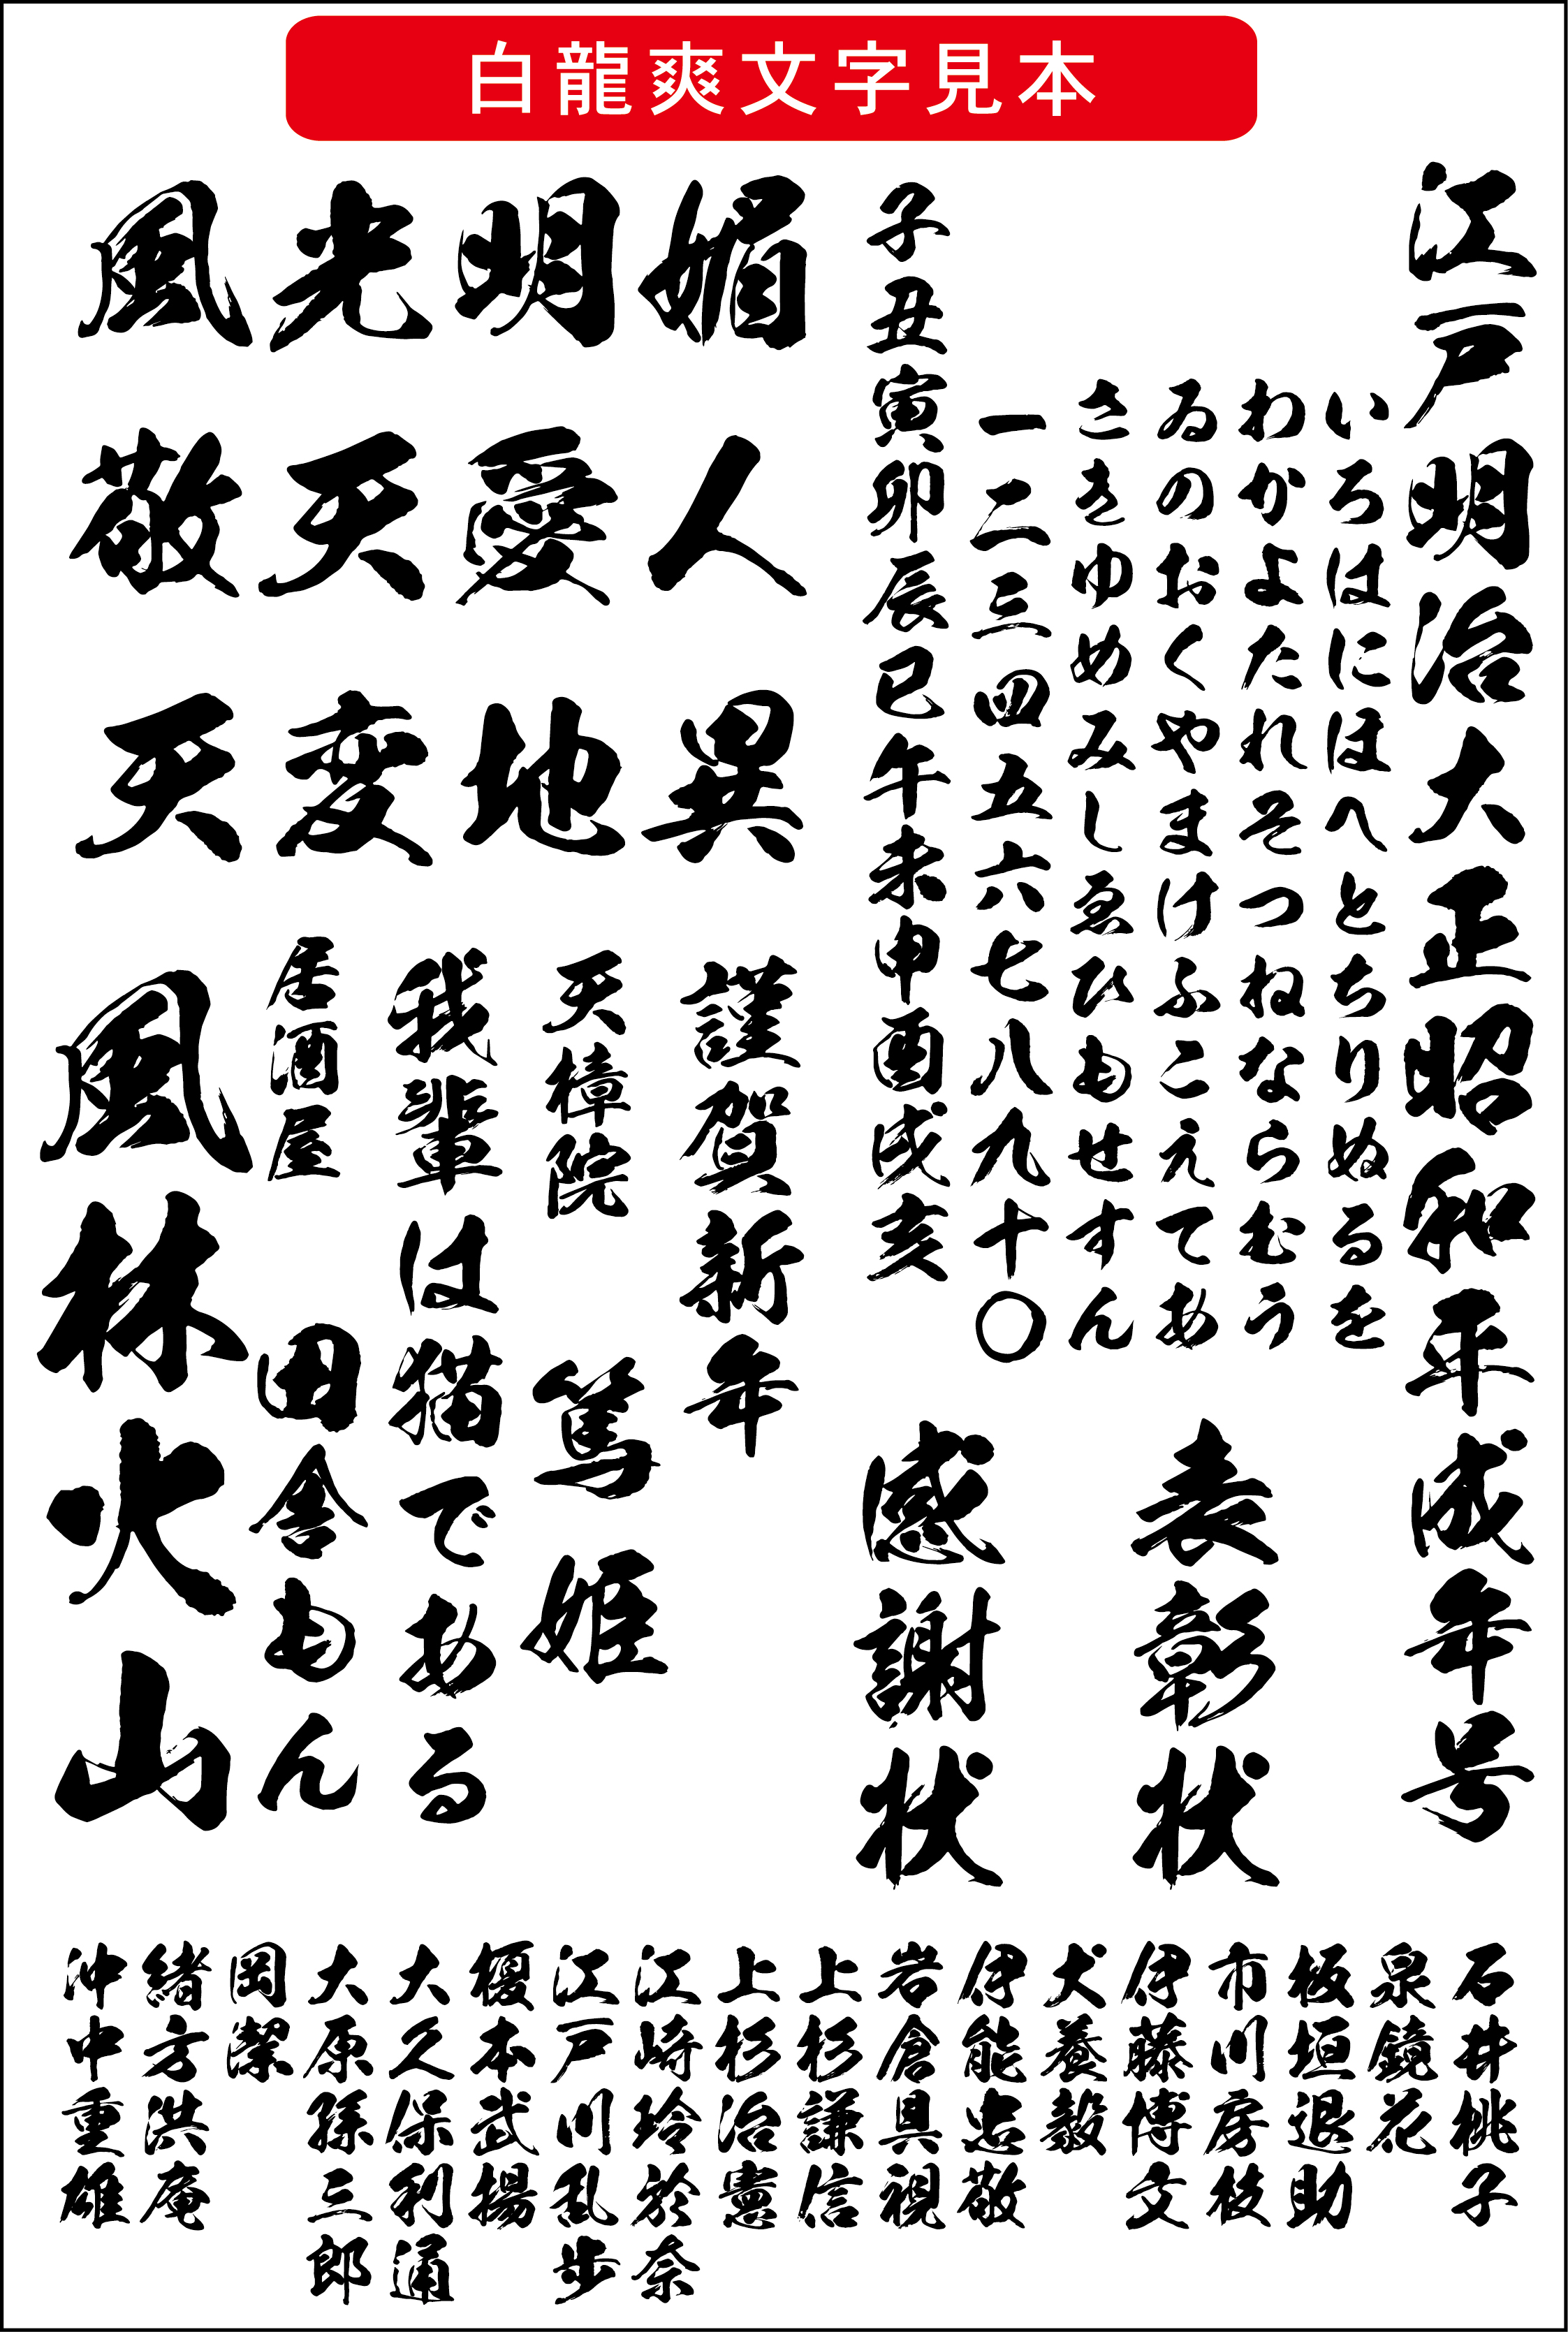 白龍爽文字見本
江戸明治大正昭和平成年号
いろはにほへとちりぬるを
わかよたれそつねならむう
ゐのおくやまけふこえてあ
さきゆめみしゑひもせすん
一二三四五六七八九十〇
子丑寅卯辰巳午未申酉戌亥
表彰状
感謝状
風光明媚
敬天愛人
天変地異
謹賀新年
天樟院
篤姫
我輩は猫である
居酒屋
田舎もん
風林火山
石井桃子
泉鏡花
板垣退助
市川房枝
伊藤博文
犬養毅
伊能忠敬
岩倉具視
上杉謙信
上杉治憲
江崎玲於奈
江戸川乱歩
榎本武揚
大久保利通
大原孫三郎
岡潔
緒方洪庵
沖中重雄